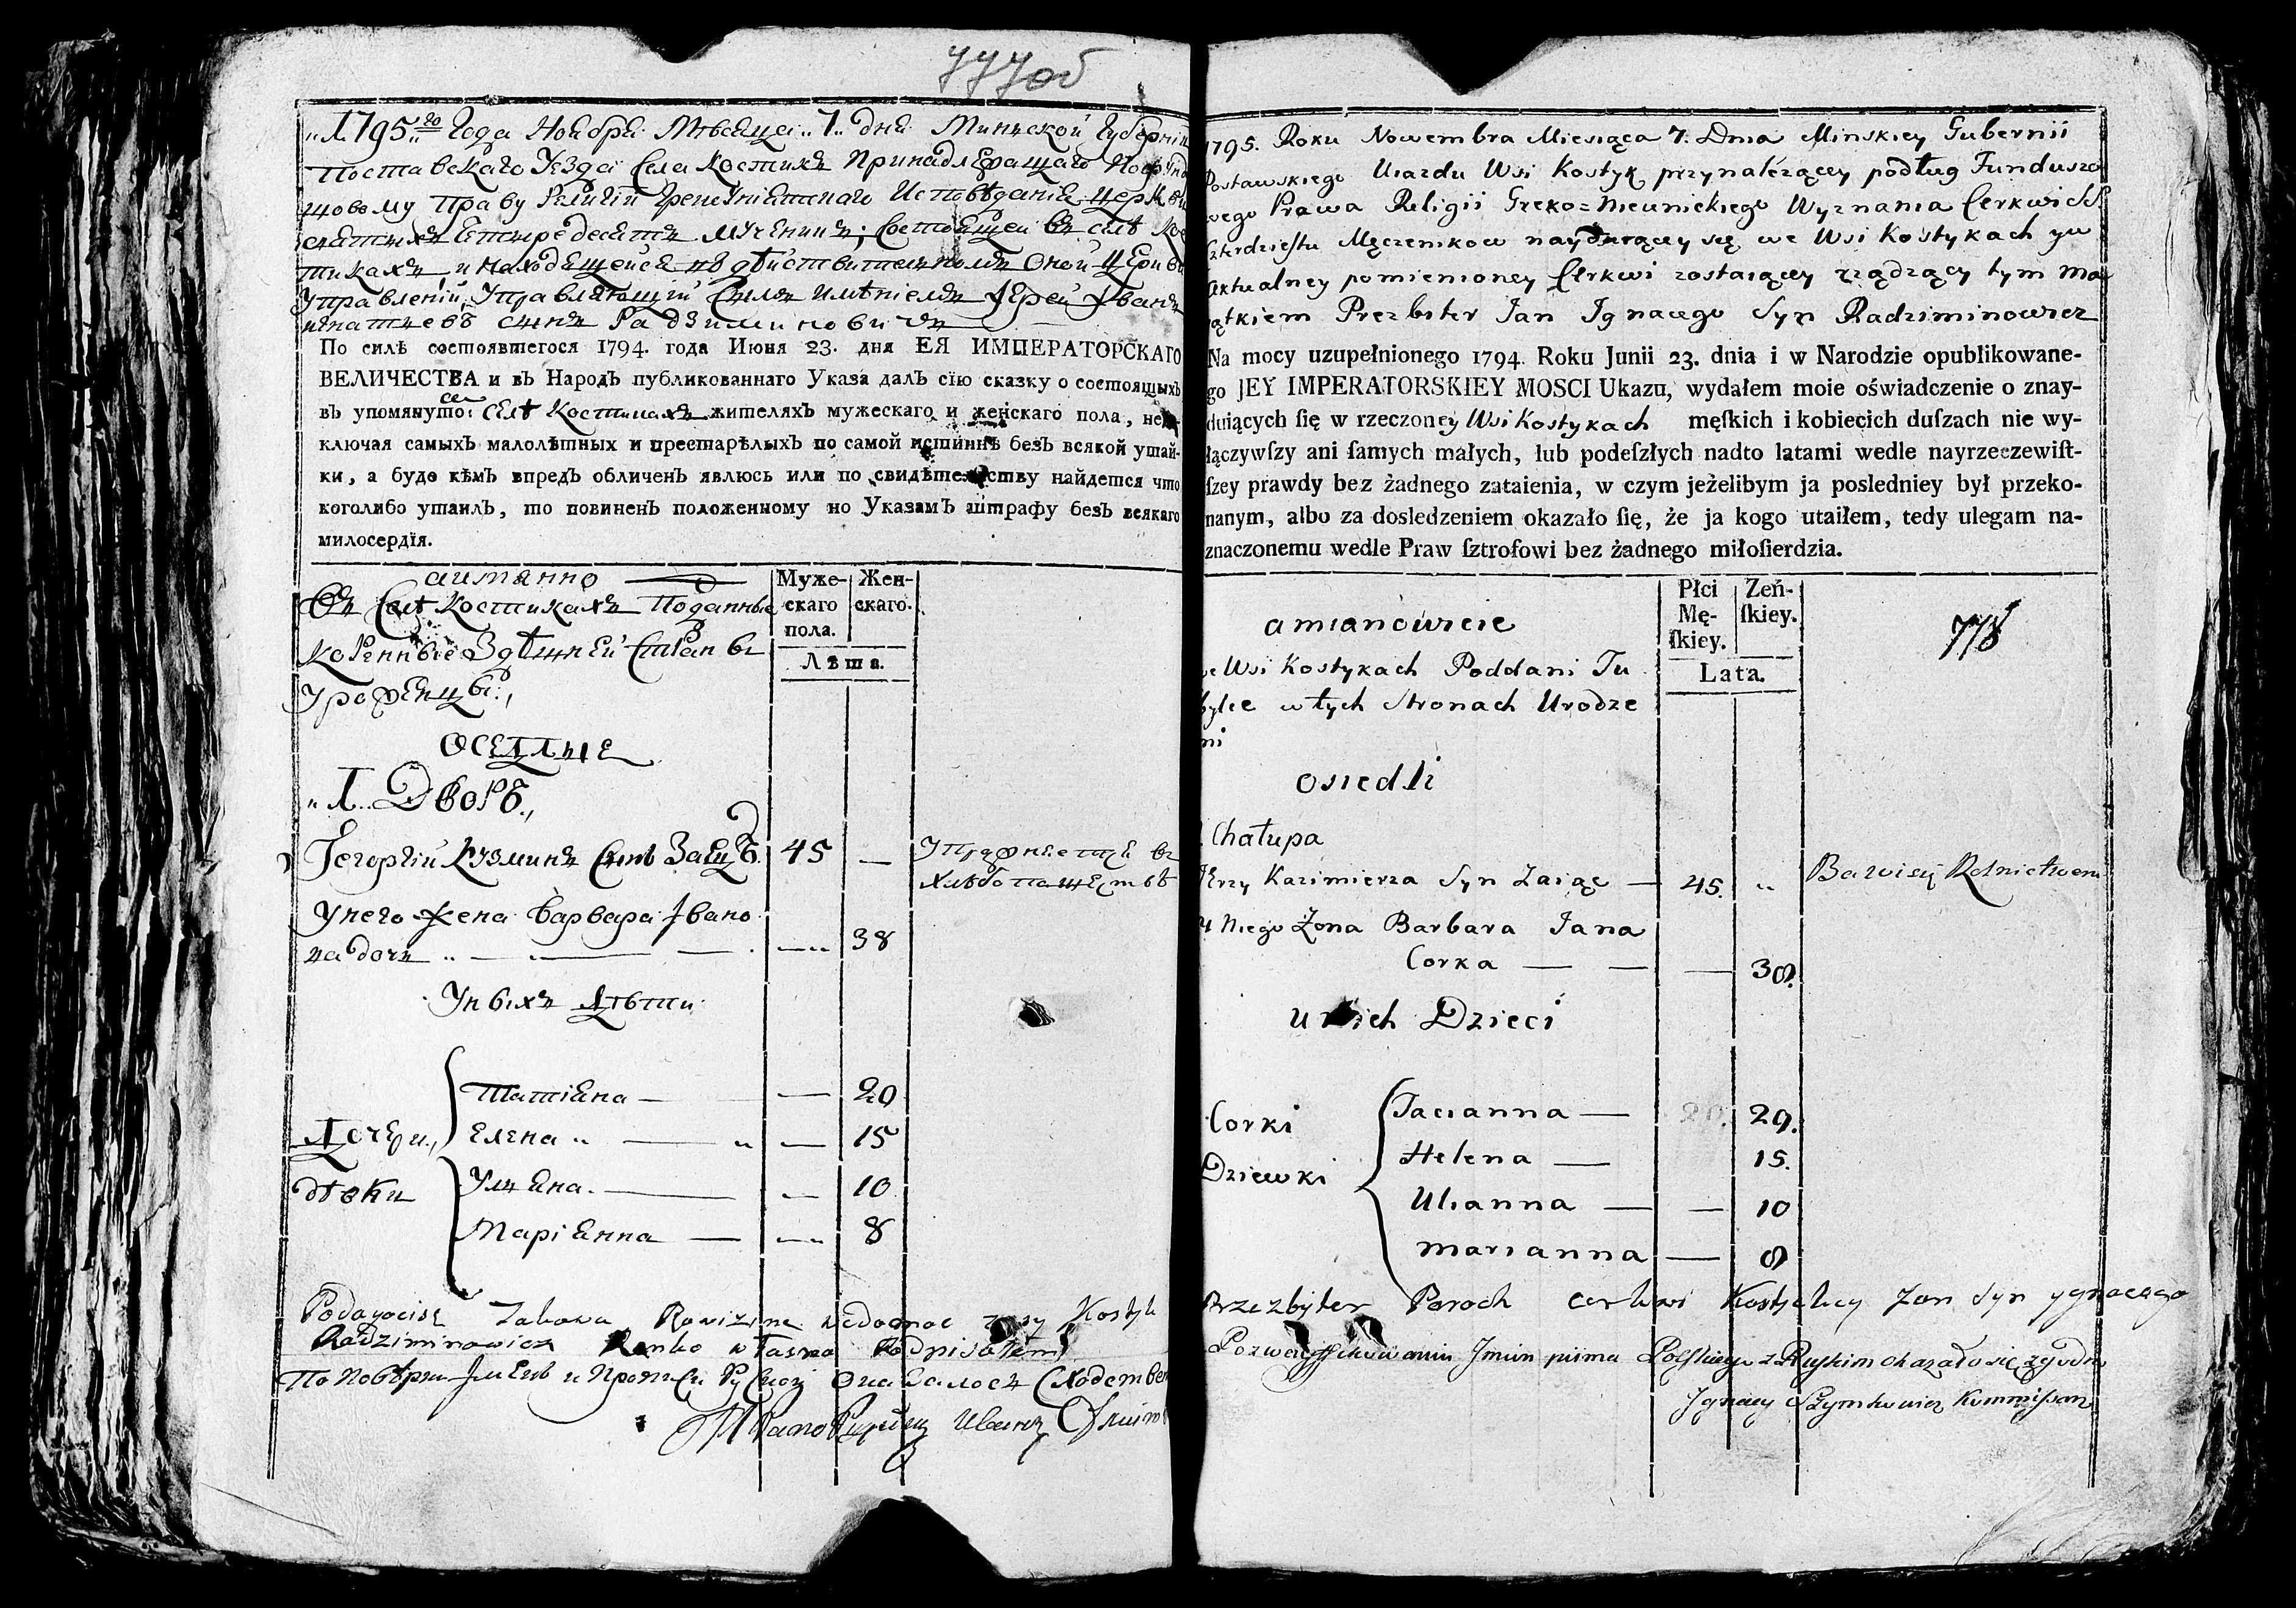 777об
1795го Года Ноября Месяца 7 дня Минской Губернии
Поставскаго Уезда Села Костикъ Принадлежащаго По Фунду
шовому Праву Религии Грекоуниатскаго Исповѣдания Церкви
святыхъ Четыредесятъ Мученикъ; Состоящей въ селѣ Кос
тикахъ и находящейся въ дѣйствительномъ оной Церкви
Управлении, Управляющий Симъ Имѣниемъ Иерей Иванъ
Игнатиевъ сынъ Радзиминовичъ
По силѣ состоявшегося 1794. года Июня 23. дня ЕЯ ИМПЕРАТОРСКАГО
ВЕЛИЧЕСТВА и въ Народъ публикованнаго Указа далъ сїю сказку о состоящыхъ
въ упомянутомъ селѣ Костикахъ жителяхъ мужескаго и женскаго пола, не ис-
ключая самыхъ малолѣтныхъ и престарѣлыхъ по самой истиннѣ безъ всякой утай-
ки, а буде кѣмъ впредъ обличенъ явлюсь или по свидѣтельству найдется что
коголибо утаилъ, то повиненъ положенному по Указамъ штрафу безъ всякаго
милосердїя.
аимянно
Въ Селѣ Костикахъ Поданные
Коренные Здѣшней Стораны
Уроженцы
Муже-
скаго
пола.
Жен-
скаго.
Лѣта.
Оседлые
1. Дворъ.
Георгий Кузминъ сынъ Заецъ 45 —
Упражняется в
Хлѣбопашествѣ
У него жена Варвара Ивано
ва дочь — 38
У ныхъ Дѣти
Дочери,
дѣвки
Татияна — 20
Елена — 15
Улияна — 10
Марианна — 8
Radziminowicz Ręnko własno Podpisałem
1795. Roku Nowembra Miesiąca 7. Dnia Minskiey Gubernii
Postawskiego Uiazdu Wsi Kostyk przynależącey podług Funduszo
wego Prawa Religii Greko=Nieunickiego Wyznania Cerkwi SS
Czterdziestu Męczenikow nayduiącey się we Wsi Kostykach yw
aktualney pomienioney Cerkwi zostaiącey rządzący tym Ma
iątkiem Prezbiter Jan Ignacego Syn Radziminowicz
Na mocy uzupełnionego 1794. Roku Junii 23. dnia i w Narodzie opublikowane-
go JEY IMPERATORSKIEY MOSCI Ukazu, wydałem moie oświadczenie o znay-
duiących ſię w rzeczoney Wsi Kostykach męſkich i kobiecich duſzach nie wy-
łączywſzy ani ſamych małych, lub podeſzłych nadto latami wedle nayrzeczewiſt-
ſzey prawdy bez żadnego zataienia, w czym jeżelibym ja posledniey był przeko-
nanym, albo za dosledzeniem okazało ſię, że ja kogo utaiłem, tedy ulegam na-
znaczonemu wedle Praw ſztrofowi bez żadnego miłoſierdzia.
amianowicie
we Wsi Kostykach Poddani Tu
bylce w tych Stronach Urodze
ni
Płci
Mę-
ſkiey.
Żeń-
ſkiey.
Lata.
778
Osiedli
1. Chałupa
Jerzy Kazimierza Syn Zaiąc — 45. „
Bawisię Rolnictwem
u Niego Żona Barbara Jana
Corka — 38.
u Nich Dzieci
Corki
Dziewki
Tacianna — 20.
Helena — 15.
Ulianna — 10
Marianna — 8
Przezbyter Paroch Cerkwi Kostyckiey Jan Syn Ygnacego
Pisma Polskiego z Ruskim okazało się zgodno
Ignacy Szymkowicz Kommissarz